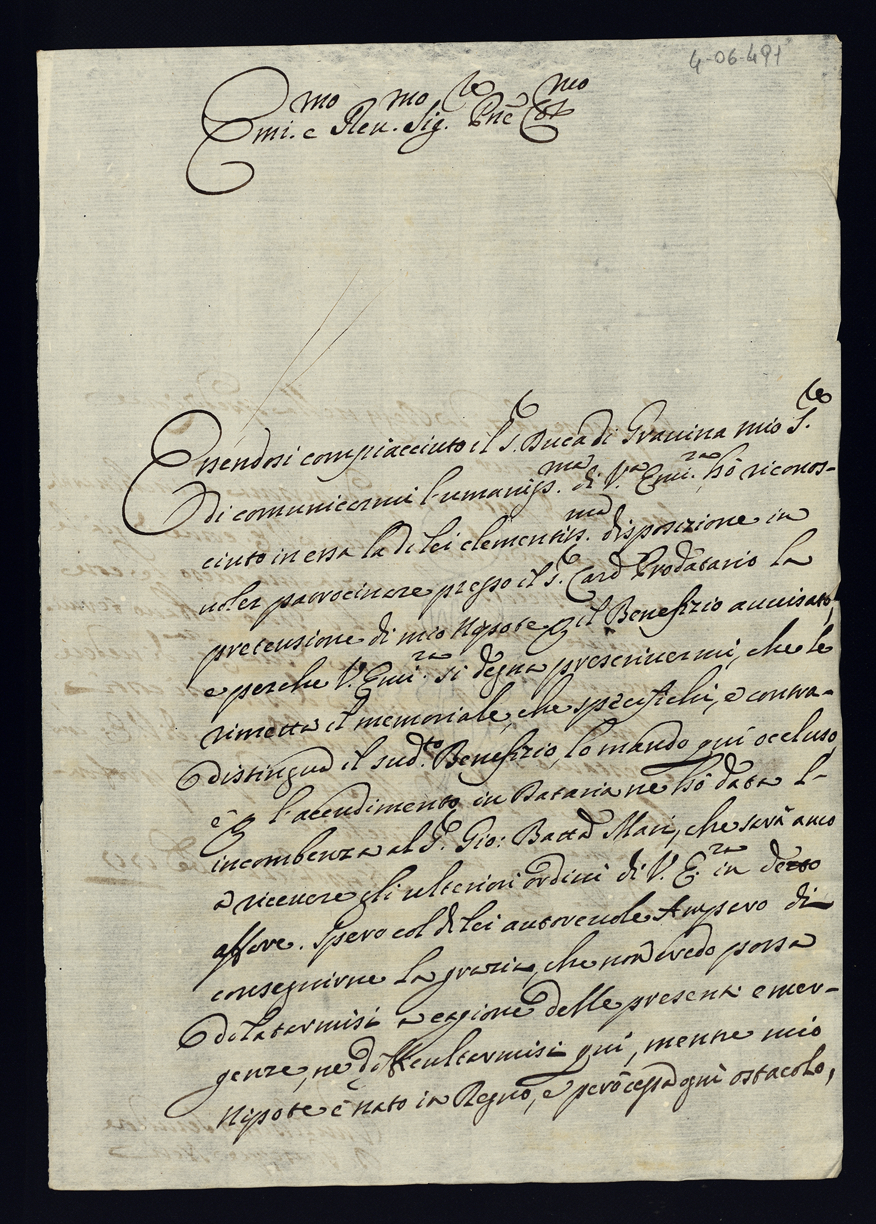 4-06-491
Emi.mo e Reu.mo Sig.re Pne Col.mo
Essendosi compiacciuto il S.e Duca di Grauina mio S.re
di comunicarmi l'umaniss.ma di V.a Emi.za hò riconos-
ciuto in essa la di lei clementiss.ma disposizione in
uoler patrocinare presso il S.e Card Prodatario la
pretensione di mio Nipote p il Benefizio auuisato,
e perche V. Emi.za si degna prescriuermi, che le
rimetta il memoriale, che specifichi, e contra-
distingua il sud.to Benefizio, lo mando qui occluso,
e p l'accudimento in Dataria ne hò data l'-
incombenza al S.e Gio: Batta Mari, che sarà anco
a riceuere gli ulteriori ordini di V. E.za in detto
affare. Spero col di lei autoreuole Impero di
conseguirne la grazia, che non credo possa
dilatarmisi a cagione delle presenti emer-
genze, ne difficultarmisi qui, mentre mio
Nipote è nato in Regno, e però cessa ogni ostacolo,